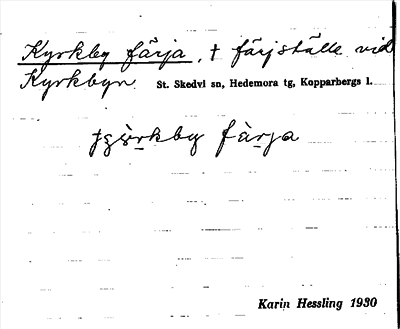 Kyrkby färja, † färjställe vid
Kyrkbyn St. Skedvi sn, Hedemora tg, Kopparbergs l.
färja
Karin Hessling 1930